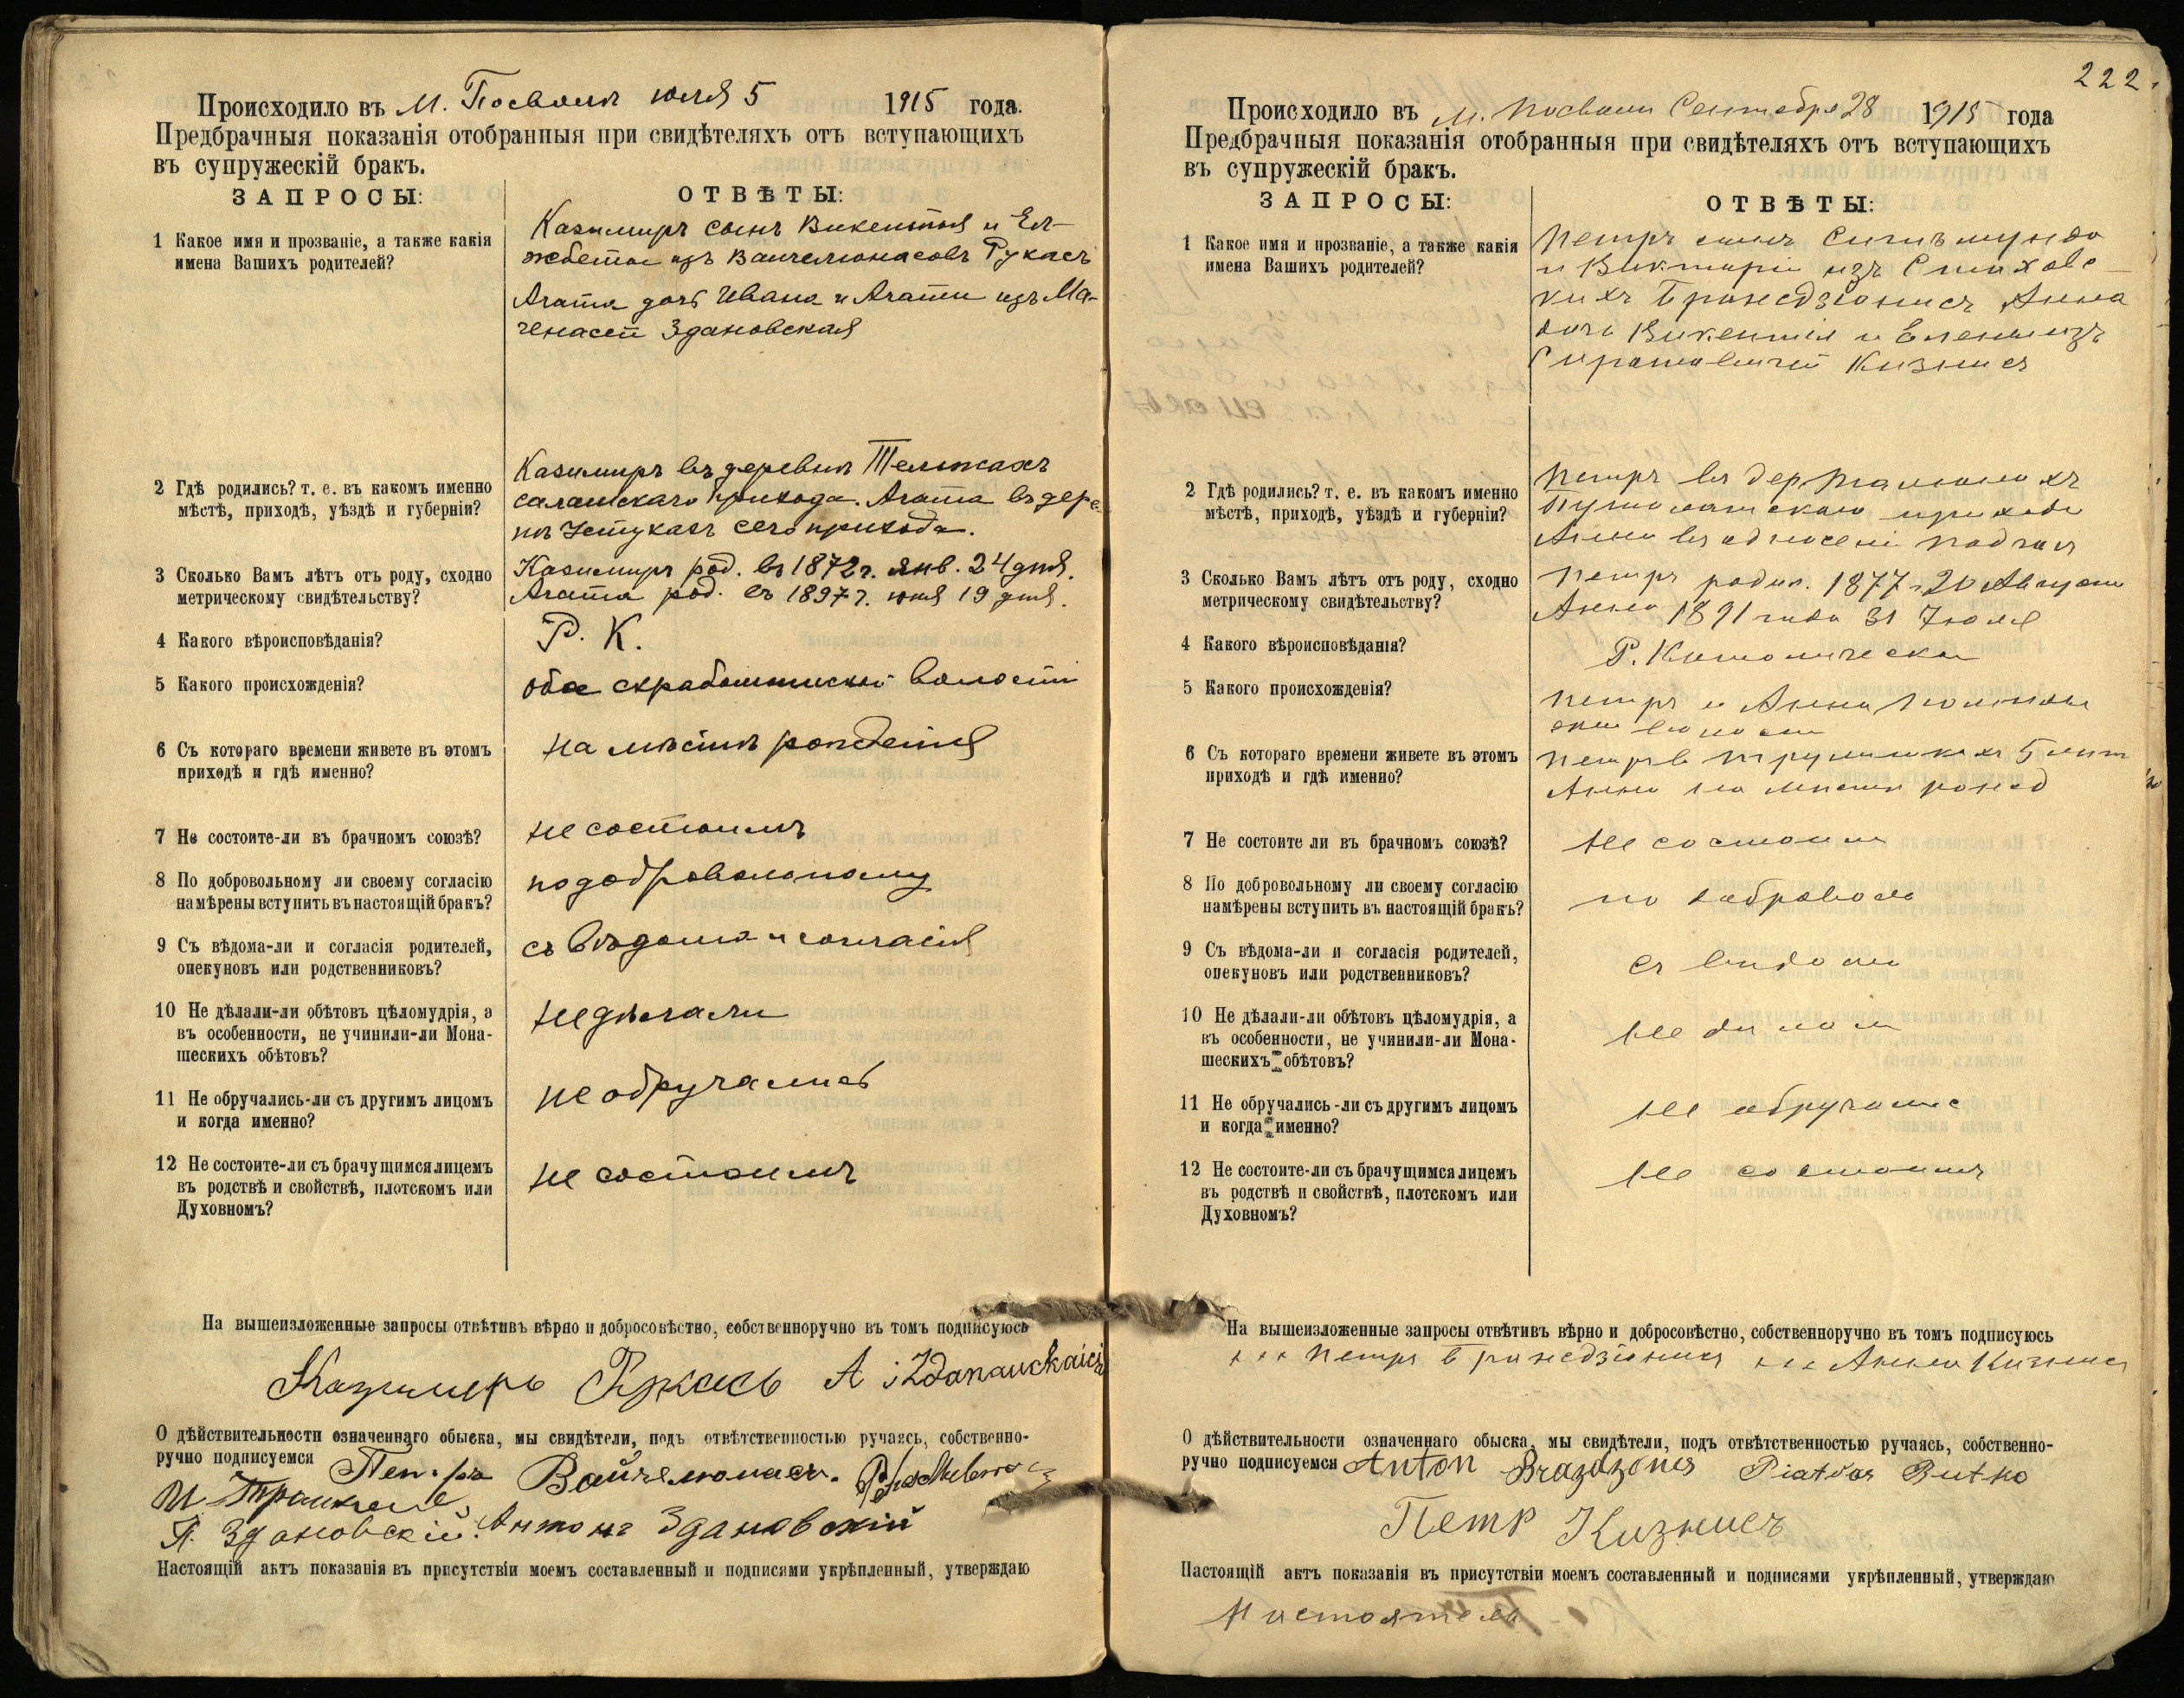 Происходило въ м. Посволѣ юля 5 1915 года.
Предбрачныя показанія отобранныя при свидѣтеляхъ отъ вступающихъ
въ супружескій бракъ.
ЗАПРОСЫ: ОТВѢТЫ:
1 Какое имя и прозваніе, а также какія
имена Вашихъ родителей?
Казимиръ сынъ Викентія и Ел-
жбеты изъ Вайчелюнасовъ Рукасъ
Агата дочь Ивана и Агаты изъ Ма-
ченасей Здановская
2 Гдѣ родились? т. е. въ какомъ именно
мѣстѣ, приходѣ, уѣздѣ и губерніи?
Казимиръ въ деревнѣ
прихода. Агата въ дере-
нѣ сего прихода.
3 Сколько Вамъ лѣтъ отъ роду, сходно
метрическому свидѣтельству?
Казимиръ род. въ 1872 г. янв. 24 дня.
Агата род. въ 1897 г. юля 19 дня.
4 Какого вѣроисповѣданія?
Р. К.
5 Какого происхожденія?
оба волости
6 Съ котораго времени живете въ этомъ
приходѣ и гдѣ именно?
на мѣстѣ рожденія
7 Не состоите-ли въ брачномъ союзѣ?
не состоимъ
8 По добровольному ли своему согласію
намѣрены вступить въ настоящій бракъ?
по добровольному
9 Съ вѣдома-ли и согласія родителей,
опекуновъ или родственниковъ?
съ вѣдома и согласія
10 Не дѣлали-ли обѣтовъ цѣломудрія, а
въ особенности, не учинили-ли Мона-
шескихъ обѣтовъ?
не дѣлали
11 Не обручались-ли съ другимъ лицомъ
и когда именно?
не обручались
12 Не состоите-ли съ брачущимся лицемъ
въ родствѣ и свойствѣ, плотскомъ или
Духовномъ?
не состоимъ
На вышеизложенные запросы отвѣтивъ вѣрно и добросовѣстно, собственноручно въ томъ подписуюсь
Казимеръ Рукасъ A
О дѣйствительности означеннаго обыска, мы свидѣтели, подъ отвѣтственностью ручаясь, собственно-
ручно подписуемся Петръ Вайчелюнасъ.
П. Здановскій. Антонъ Здановскій
Настоящій актъ показанія въ присутствіи моемъ составленный и подписями укрѣпленный, утверждаю
222.
Происходило въ м. Посволи Сентября 28 1915 года
Предбрачныя показанія отобранныя при свидѣтеляхъ отъ вступающихъ
въ супружескій бракъ.
ЗАПРОСЫ: ОТВѢТЫ:
1 Какое имя и прозваніе, а также какія
имена Вашихъ родителей?
Петръ сынъ Сигизмунда
и Викторіи изъ
Анна
дочь Викентія и Елены изъ
Кизнисъ
2 Гдѣ родились? т. е. въ какомъ именно
мѣстѣ, приходѣ, уѣздѣ и губерніи?
Петръ въ дер
прихода
Анна въ
3 Сколько Вамъ лѣтъ отъ роду, сходно
метрическому свидѣтельству?
Петръ родил. 1877 г 20 Августа
Анна 1891 года 31 Іюля
4 Какого вѣроисповѣданія?
Р. Католическа
5 Какого происхожденія?
Петръ и Анна
волости
6 Съ котораго времени живете въ этомъ
приходѣ и гдѣ именно?
Петръ в 5 лѣт
Анна на мѣстѣ рожд
7 Не состоите ли въ брачномъ союзѣ?
не состоим
8 По добровольному ли своему согласію
намѣрены вступить въ настоящій бракъ?
по доброволь
9 Съ вѣдома-ли и согласія родителей,
опекуновъ или родственниковъ?
съ вѣдома
10 Не дѣлали-ли обѣтовъ цѣломудрія, а
въ особенности, не учинили-ли Мона-
шескихъ обѣтовъ?
не дѣлали
11 Не обручались-ли съ другимъ лицомъ
и когда именно?
не обручалис
12 Не состоите-ли съ брачущимся лицемъ
въ родствѣ и свойствѣ, плотскомъ или
Духовномъ?
не состоимъ
На вышеизложенные запросы отвѣтивъ вѣрно и добросовѣстно, собственноручно въ томъ подписуюсь
+++ Петръ +++ Анна Кизнисъ
О дѣйствительности означеннаго обыска, мы свидѣтели, подъ отвѣтственностью ручаясь, собственно-
ручно подписуемся Anton Piatras Butko
Петр Кизнисъ
Настоящій актъ показанія въ присутствіи моемъ составленный и подписями укрѣпленный, утверждаю
Настоятель